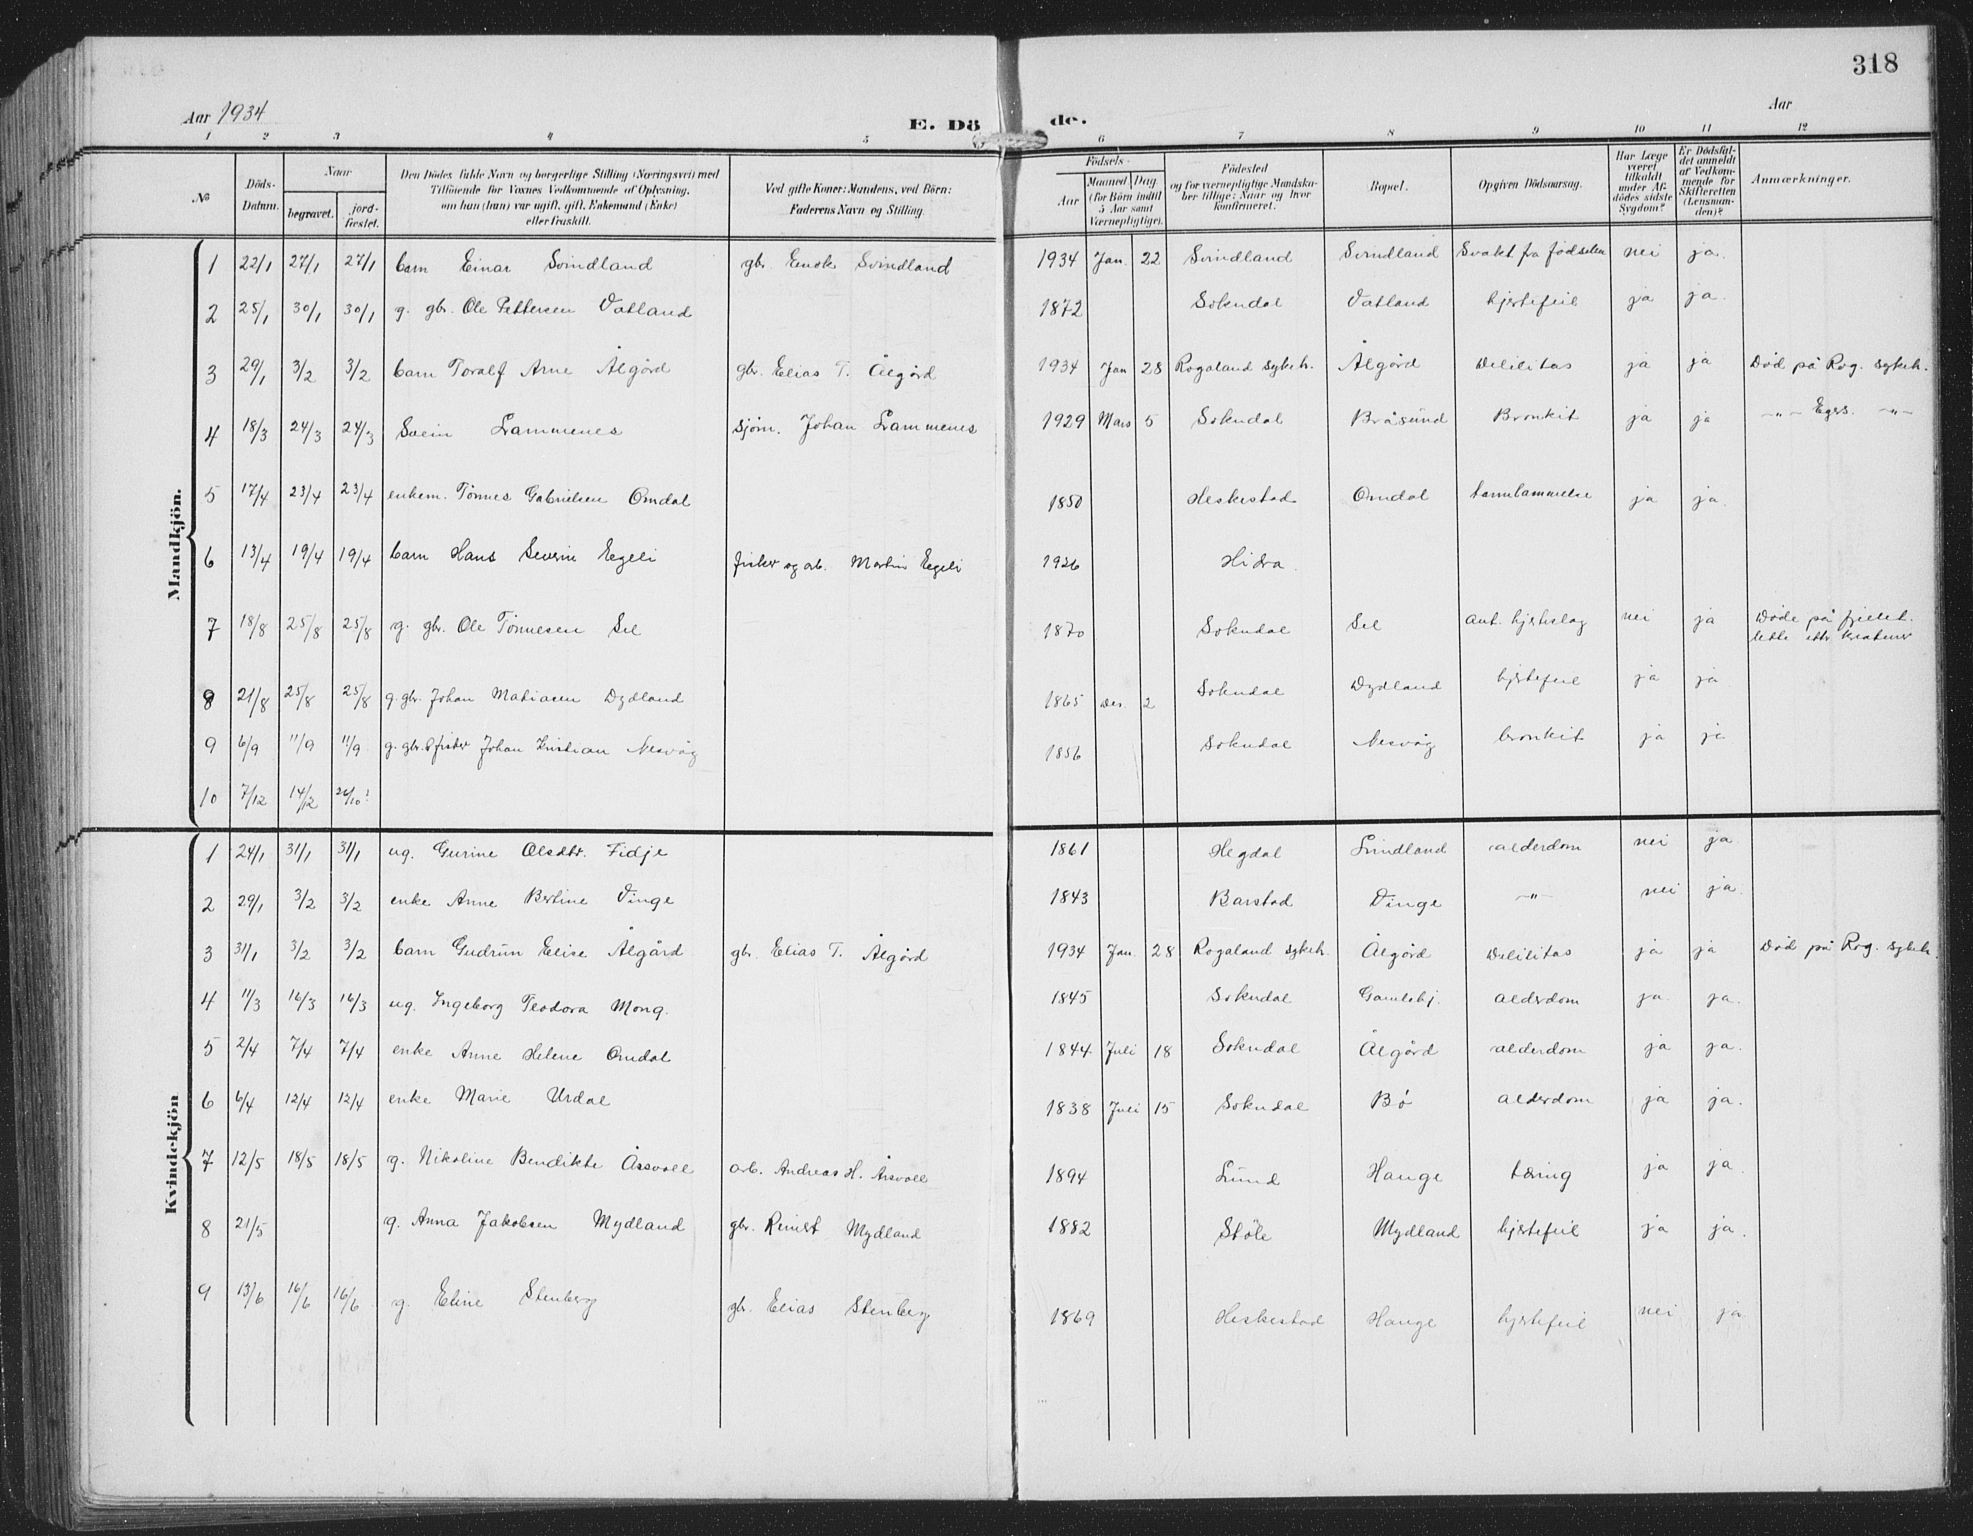 318
Aar 1934
E. Dö de.
Aar
1 2 3 4 5 6 7 8 9 10 11 12
No
Döds-Datum.
Naar
begravet.
jord-fæstet.
Den Dödes fulde Navn og borgerlige Stilling (Næringsvei) med
Tilföiende for Voxnes Vedkommende af Oplysning,
om han (hun) var ugift, gift, Enkemand (Enke)
eller fraskilt.
Ved gifte Koner: Mandens, ved Börn:
Faderens Navn og Stilling.
Födsels-
Aar
Maaned Dag
(for Börn indtil
5 Aar samt
Værnepligtige).
Födested
og for værnepligtige Mandska-
ber tillige: Naar og hvor
konfirmeret.
Bopæl.
Opgiven Dödsaarsag.
Har Læge
været
tilkaldt
under Af-
dödes sidste
Sygdom?
Er Dödsfal-
det anmeldt
af Vedkom-
mende for
Skifteretten
(Lensman-
den)?
Anmærkninger.
Mandkjön.
1 22/1 27/1 27/1 barn Einar Svindland gbr. Enok Svindland 1934 Jan. 22 Svindland Svindland Svakt fra fødselen nei ja.
2 25/1 30/1 30/1 g. gbr. Ole Pettersen Vatland 1872 Sokndal Vatland hjertefeil ja ja.
3 29/1 3/2 3/2 barn Toralf Arne Ålgård gbr. Elias T. Ålgård 1934 Jan 28 Rogaland sykeh. Ålgård Debilitas ja ja Død på Rog. sykeh.
4 18/3 24/3 24/3 Svein Lammenes sjøm. Johan Lammenes 1929 Mars 5 Sokndal Bråsund Bronkit ja ja -"- Egers. -"-
5 17/4 23/4 23/4 enkem. Tønnes Gabrielsen Omdal 1850 Heskestad Omdal ja ja.
6 13/4 19/4 19/4 barn Hans Severin Eegeli fisker og arb. Martin Eegeli 1926 Hidra.
7 18/8 25/8 25/8 g. gbr. Ole Tønnesen Sel 1870 Sokndal Sel ant. hjerteslag nei ja Døde på fjellet.
lette etter kreaturer
8 21/8 25/8 25/8 g. gbr. Johan Matiasen Dydland 1865 Des. 2 Sokndal Dydland hjertefeil ja ja
9 6/9 11/9 11/9 g. gbr. & fisker Johan Kristian Nesvåg 1856 Sokndal Nesvåg bronkit ja ja
10 7/12 14/12
Kvindekjön
1 24/1 31/1 31/1 ug. Gurine Olsdtr. Fidje 1861 Hegdal Svindland alderdom nei ja
2 29/1 3/2 3/2 enke Anne Bertine Vinge 1843 Barstad Vinge -"- nei ja.
3 31/1 3/2 3/2 barn Gudrun Elise Ålgård gbr. Elias T. Ålgård 1934 Jan. 28 Rogaland sykeh. Ålgård Debilitas ja ja Død på Rog. sykeh.
4 11/3 16/3 16/3 ug. Ingeborg Teodora Mong. 1845 Sokndal Gamlehj. alderdom ja. ja.
5 2/4 7/4 7/4 enke Anne Helene Omdal 1844. Juli 18 Sokndal Ålgård alderdom ja ja.
6 6/4 12/4 12/4 enke Marie Urdal 1838 Juli 15 Sokndal Bø alderdom ja ja.
7 12/5 18/5 18/5 g. Nikoline Bendikte Årsvoll arb. Andreas H. Årsvoll 1894 Lund Hauge tæring ja ja.
8 21/5 g. Anna Jakobsen Mydland gbr. Reinert Mydland 1882 Støle Mydland hjertefeil ja ja.
9 13/6 16/6 16/6 g. Eline Stenberg gbr. Elias Stenberg 1869 Heskestad Hauge hjertefeil nei ja